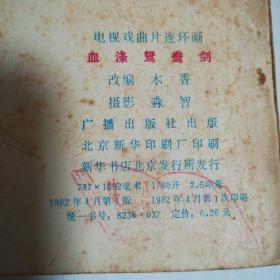 电视戏曲片连环画
血涤鸳鸯剑
改编 木香
摄影 淼智
广播出版社出版
北京新华印刷厂印刷
新华书店北京发行所发行
787×1092毫米 1/60开 2.5印张
1982年4月第1版 1982年4月第1次印刷
统一书号：8236·032 定价：0.26元